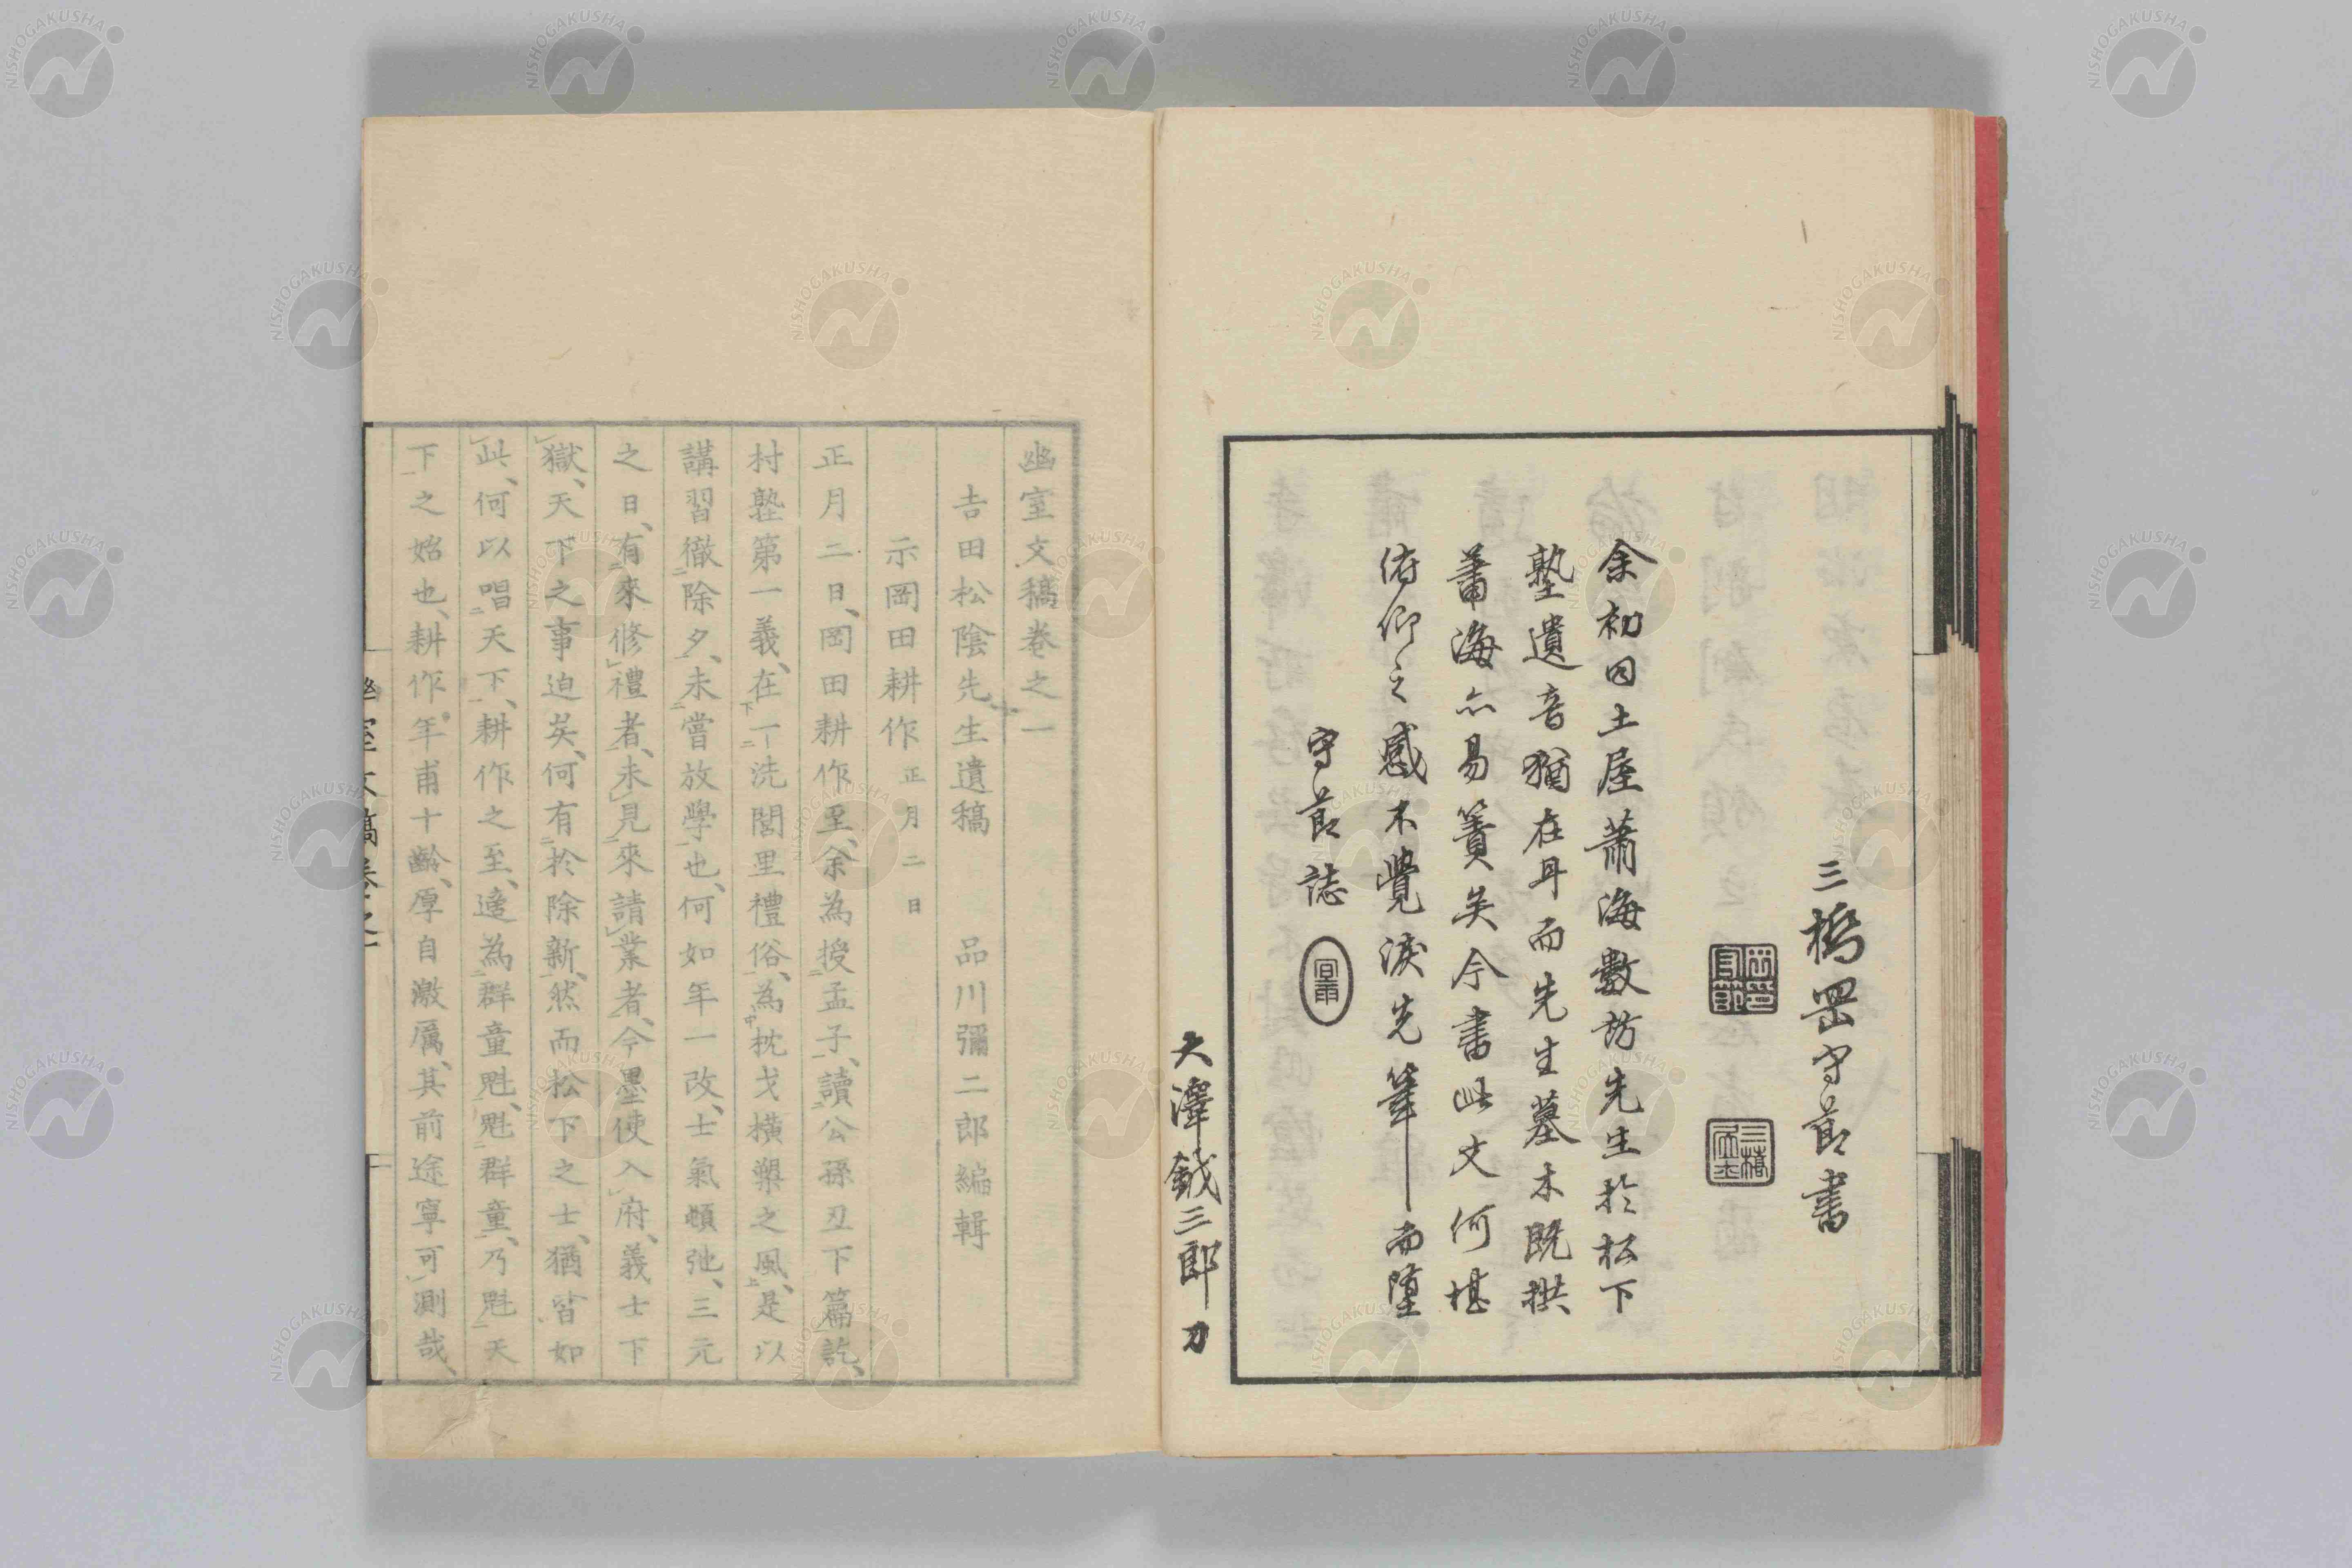 三橋罡守節書
余初因土屋蕭海數訪先生於松下
塾遺音猶在耳而先生墓木既拱
蕭海亦易簀矣今書此文何堪
俯仰之感不覺淚先筆而墮
守節誌
大澤鉞三郎刀
幽室文稿卷之一
吉田松陰先生遺稿 品川彌二郎編輯
示岡田耕作 正月二日
正月二日、岡田耕作至、余為授孟子、讀公孫丑下篇訖、
村塾第一義、在下一洗閭里禮俗、為枕戈橫槊之風、是以
講習徹除夕、未嘗放學也、何如年一改、士氣頓弛、三元
之日、有來修禮者、未見來請業者、今墨使入府、義士下
獄、天下之事迫矣、何有於除新、然而松下之士、猶皆如
此、何以唱天下、耕作之至、適為群童魁、魁群童、乃魁天
下之始也、耕作年甫十齡、厚自激厲、其前途寧可測哉、
幽室文稿卷之一
NISHOGAKUSHA